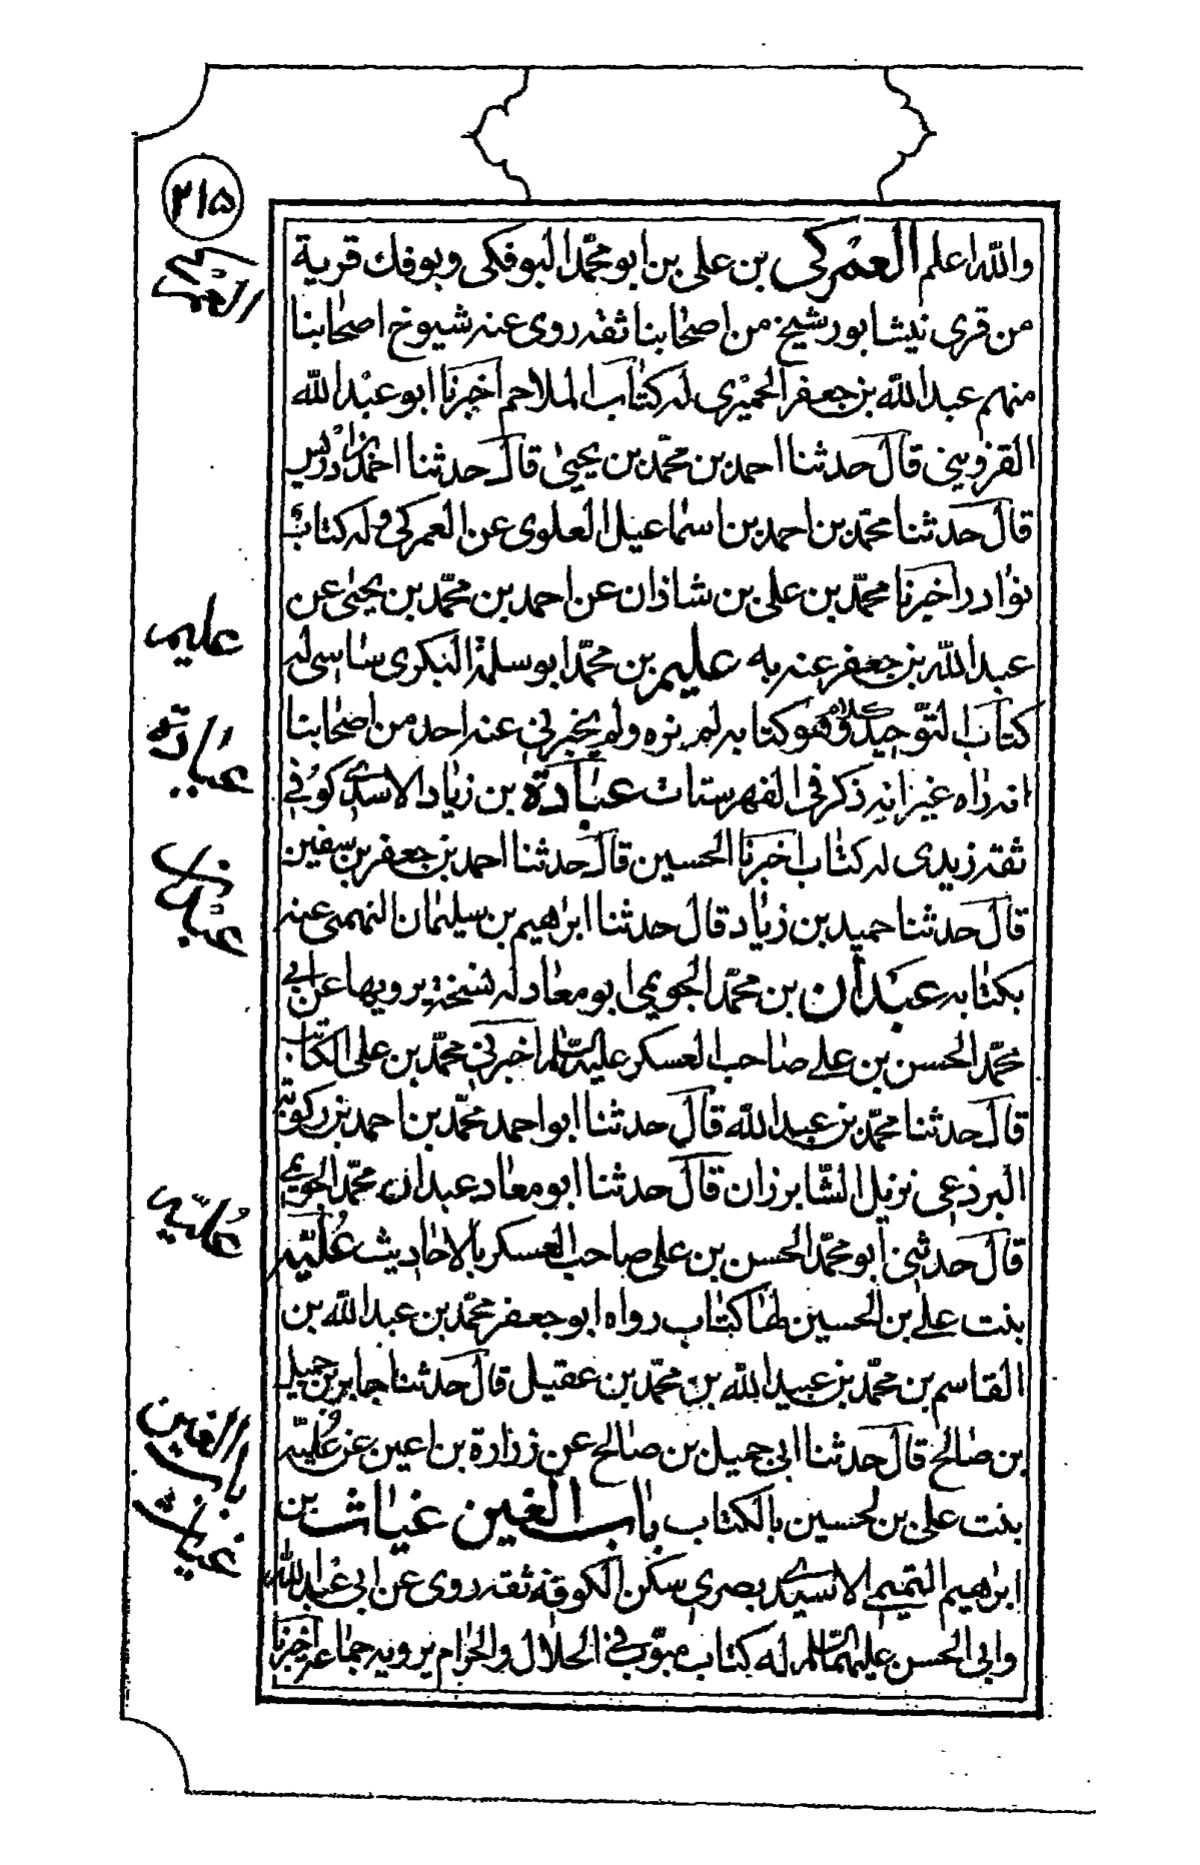 ٢١۵
والله اعلم العمركى بن على بن ابو محمّد البوفكى وبوفك قرية
العمركى
من قرى نيشابور شيخ من اصحابنا ثقة روى عنه شيوخ اصحابنا
منهم عبد الله بن جعفر الحميرى له كتاب الملاحم اخبرنا ابو عبد الله
القزوينى قال حدثنا احمد بن محمّد بن يحيى قال حدثنا احمد بن ادريس
قال حدثنا محمّد بن احمد بن اسماعيل العلوى عن العمركى وله كتاب
نوادر اخبرنا محمّد بن على بن شاذان عن احمد بن محمّد بن يحيى عن
عبد الله بن جعفر عنه به عليم بن محمّد ابو سلمة البكرى شاسى له
عليم
كتاب التوحيد كلام وهو كتاب لم نره ولم يخبرنى عنه احد من اصحابنا
عبادة
انه رآه غير انه ذكر فى الفهرستات عبادة بن زياد الاسدى كوفى
ثقة زيدى له كتاب اخبرنا الحسين قال حدثنا احمد بن جعفر بن سفين
عبدان بن
قال حدثنا حميد بن زياد قال حدثنا ابرهيم بن سليمان النهمى عنه
بكتابه عبدان بن محمّد الجويمى ابو معاد له نسخة يرويها عن ابى
محمّد الحسن بن على صاحب العسكر عليه السلام اخبرنى محمّد بن على الكاتب
قال حدثنا محمّد بن عبد الله قال حدثنا ابو احمد محمّد بن احمد بن
البرذعى نزيل الشابرزان قال حدثنا ابو معاد عبدان بن محمّد الجويمى
عُليّه
قال حدثنى ابو محمّد الحسن بن على صاحب العسكر بالاحاديث عُليّه
بنت على بن الحسين لها كتاب رواه ابو جعفر محمّد بن عبد الله بن
القاسم بن محمّد بن عبيد الله بن محمّد بن عقيل قال حدثنا جابر بن جميل
بن صالح قال حدثنا ابى جميل بن صالح عن زرارة بن اعين عن عُليّه
باب الغين
بنت على بن الحسين بالكتاب باب الغين غياث بن
غياث
ابرهيم التميمى الاسيدى بصرى سكن الكوفة ثقة روى عن ابى عبد الله
وابى الحسن عليهما السلام له كتاب مبوّب فى الحلال والحرام يرويه جماعة اخبرنا